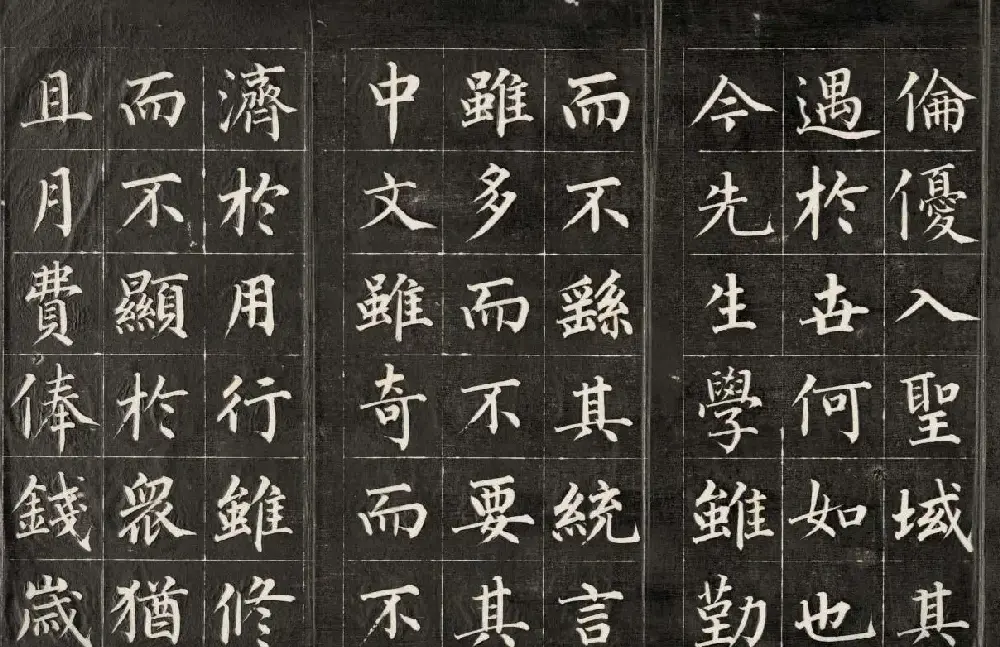 倫優入聖域其
遇於世何如也
今先生學雖勤
而不繇其統言
雖多而不要其
中文雖奇而不
濟於用行雖修
而不顯於衆猶
且月費俸錢歲